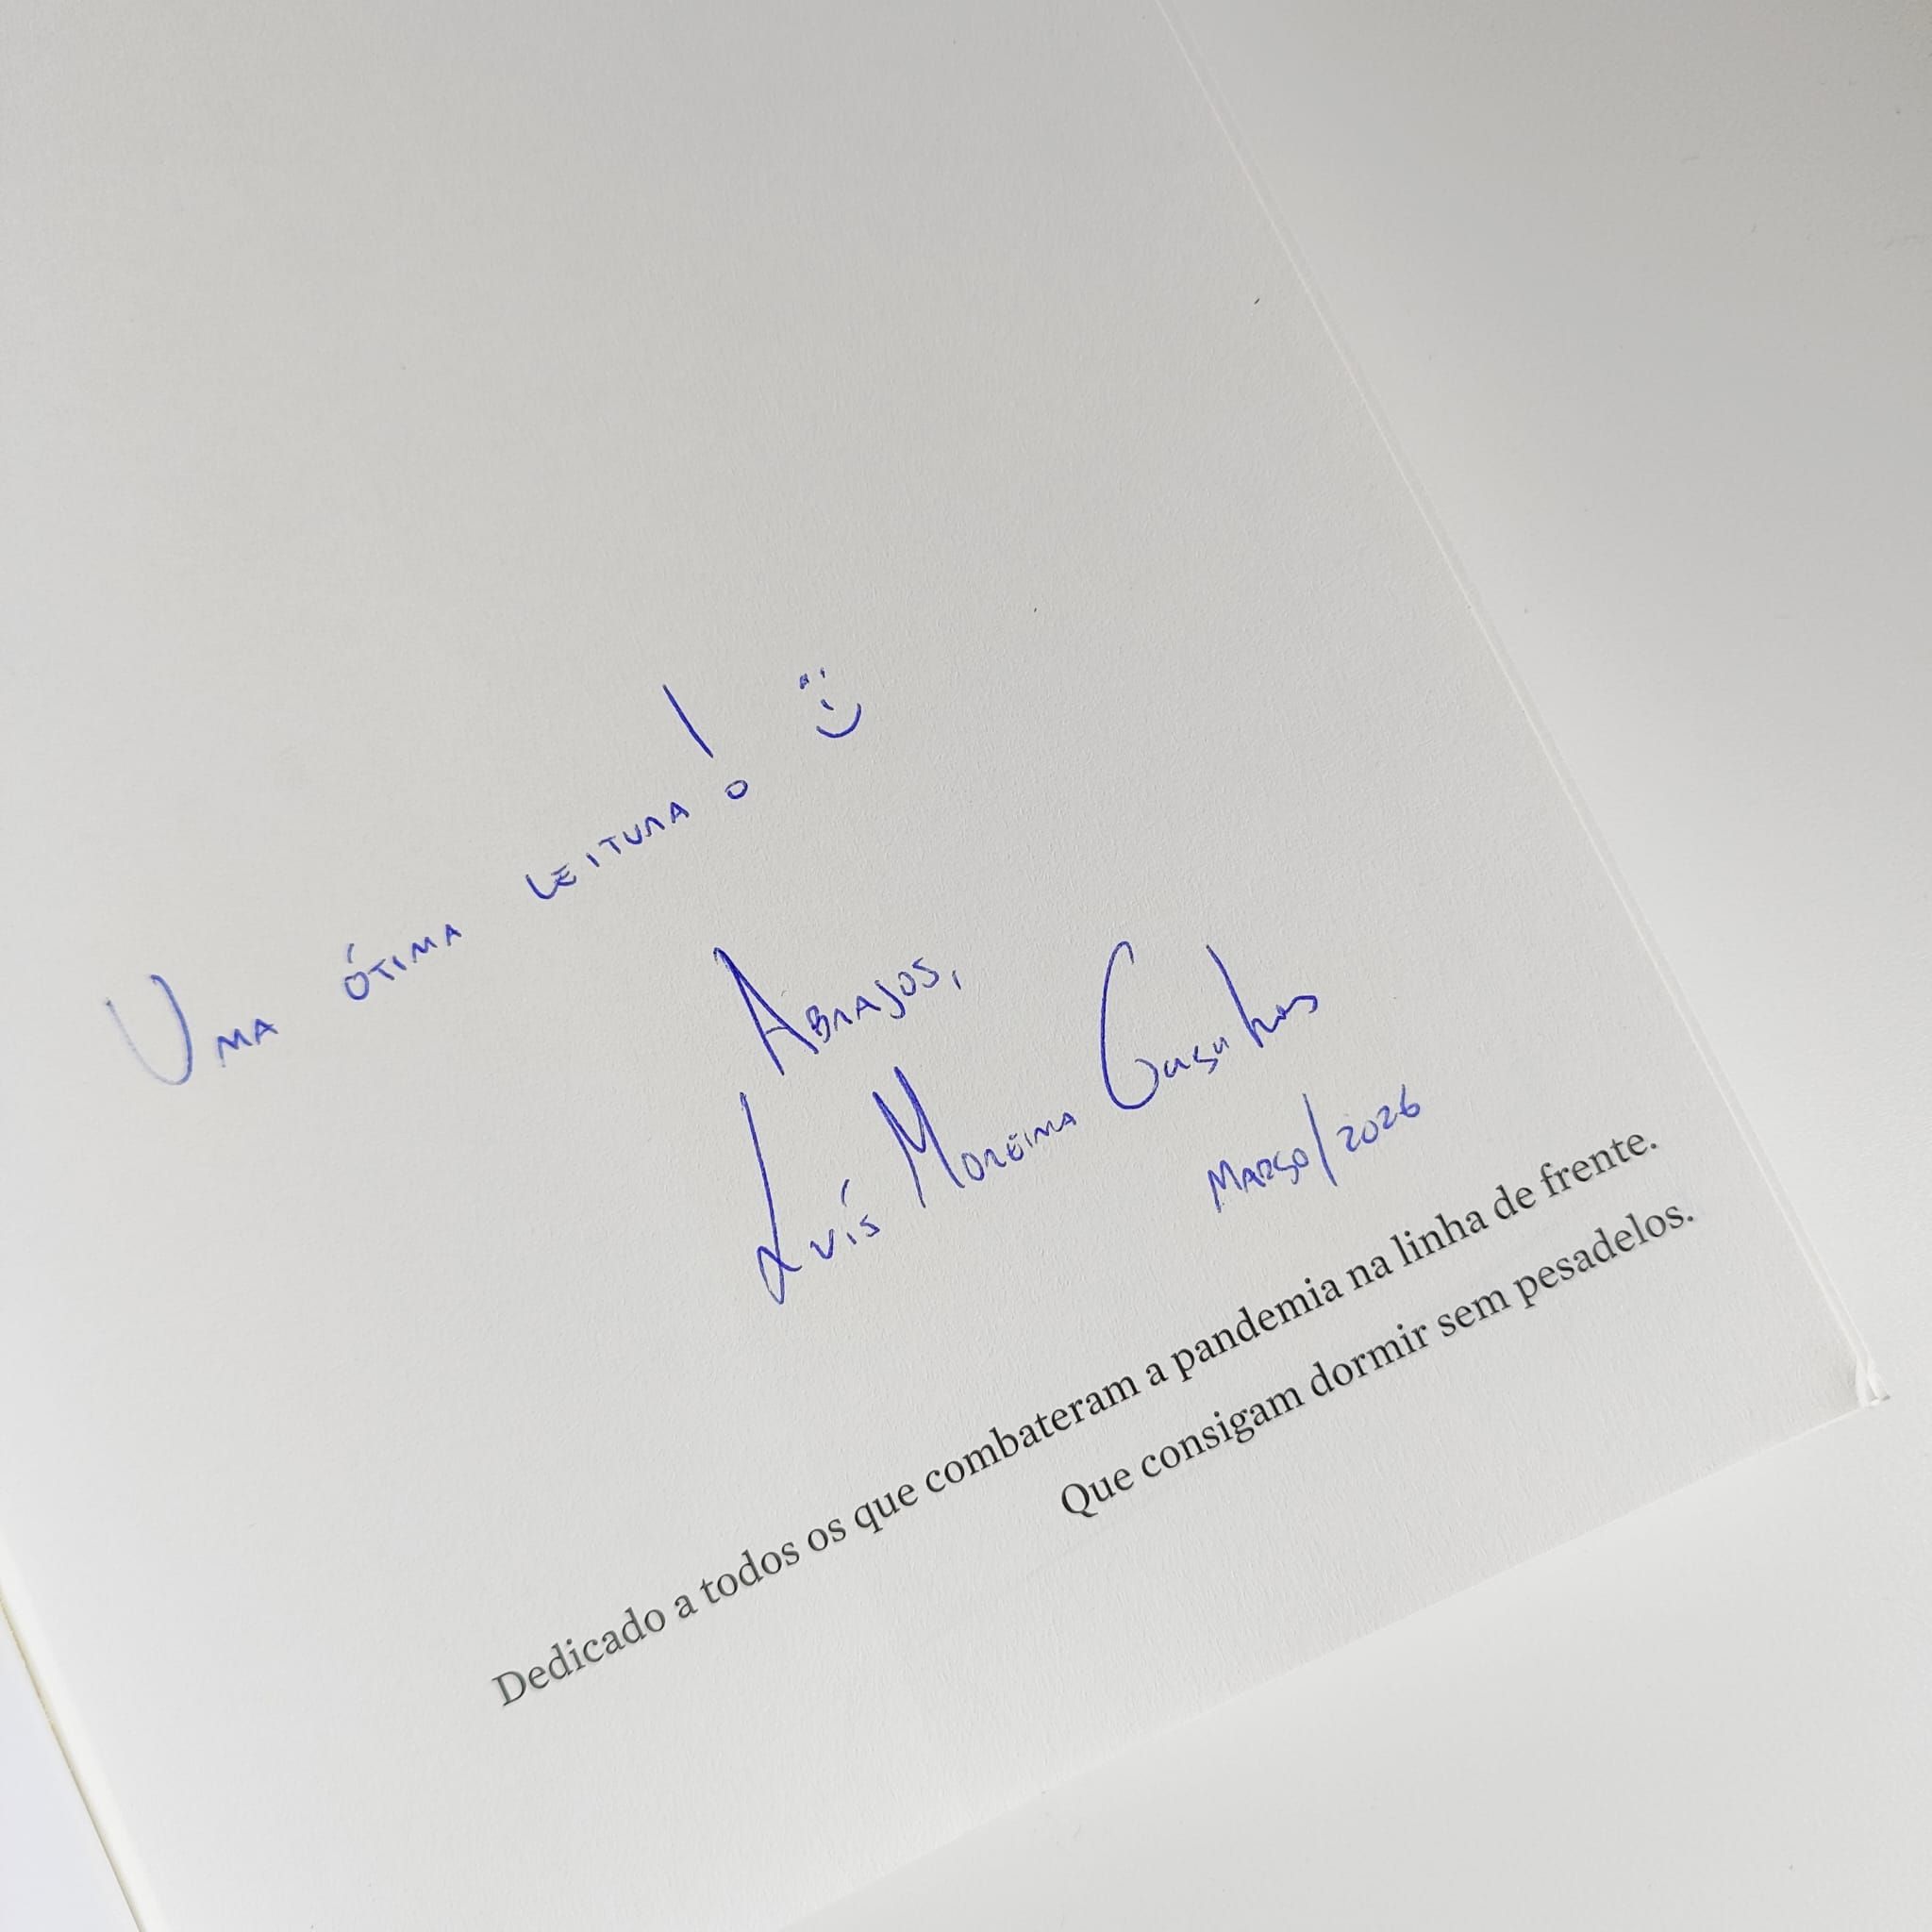 Uma ótima leitura! :)
Abraços,
Luís Moreira Gonçalves
Março/2026
Dedicado a todos os que combateram a pandemia na linha de frente.
Que consigam dormir sem pesadelos.